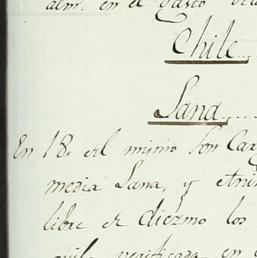 alm. en el Gasto
Chile...
Lana....
En 18. del mismo son Car
media Lana, y
libre el diezmo los
en